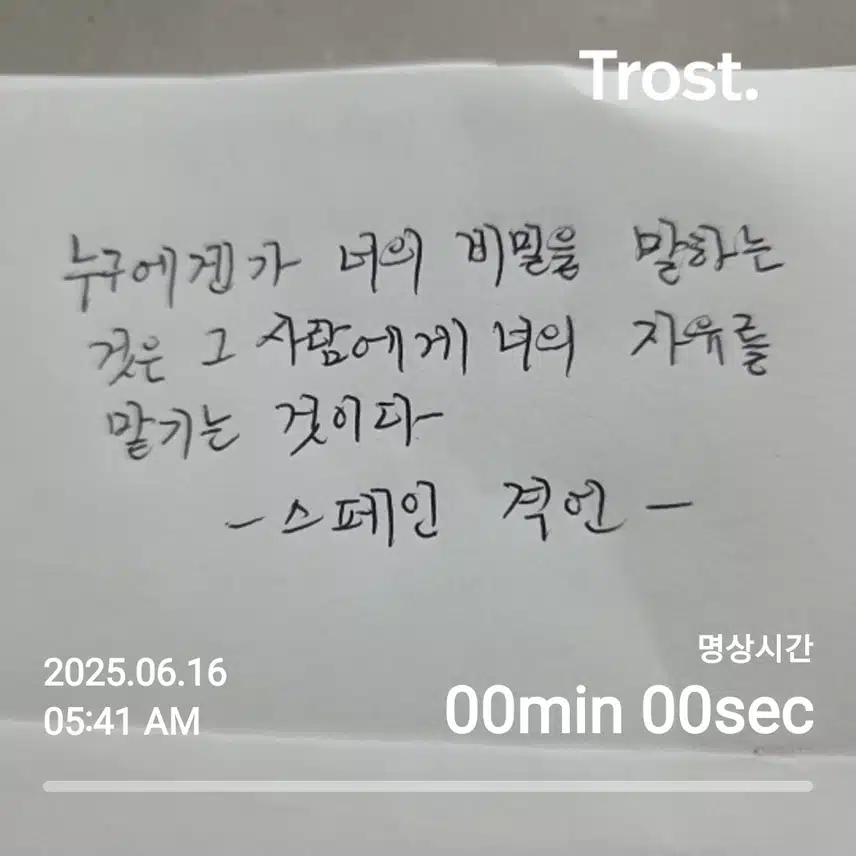 Trost.
누구에겐가 너의 비밀을 말하는
것은 그 사람에게 너의 자유를
맡기는 것이다
-스페인 격언-
명상시간
2025.06.16
05:41 AM
00min 00sec